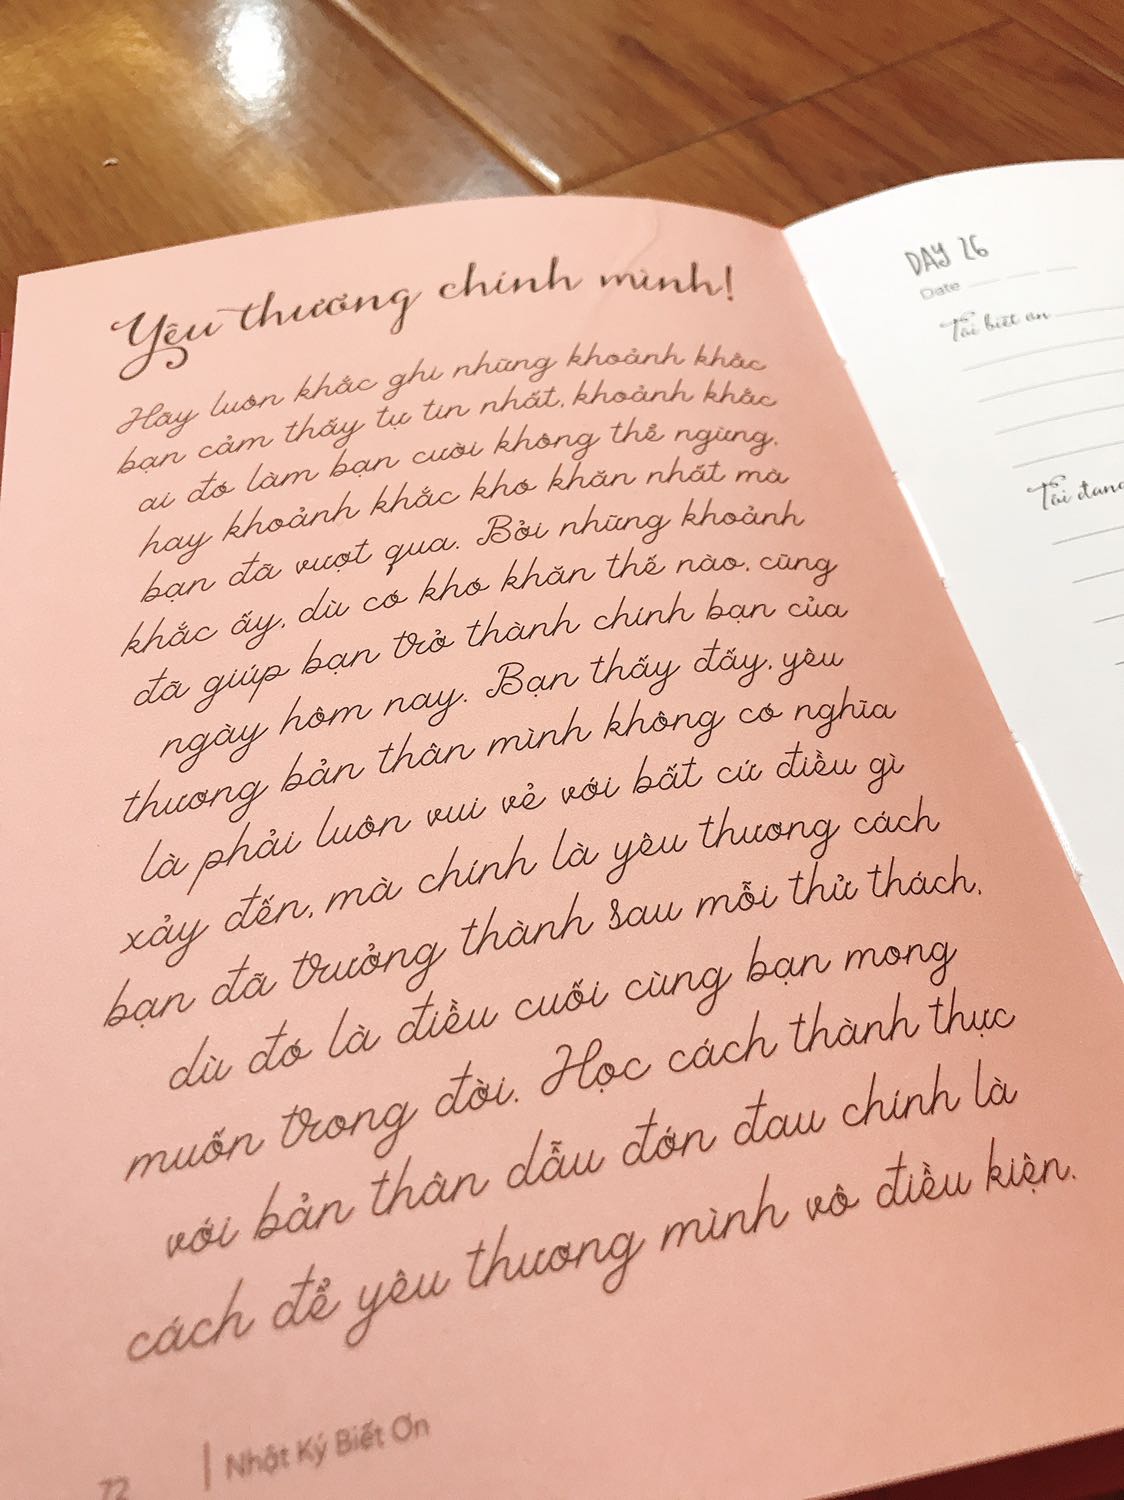 Yêu thương chính mình!
Hãy luôn khắc ghi những khoảnh khắc
bạn cảm thấy tự tin nhất, khoảnh khắc
ai đó làm bạn cười không thể ngừng,
hay khoảnh khắc khó khăn nhất mà
bạn đã vượt qua. Bởi những khoảnh
khắc ấy, dù có khó khăn thế nào, cũng
đã giúp bạn trở thành chính bạn của
ngày hôm nay. Bạn thấy đấy, yêu
thương bản thân mình không có nghĩa
là phải luôn vui vẻ với bất cứ điều gì
xảy đến, mà chính là yêu thương cách
bạn đã trưởng thành sau mỗi thử thách,
dù đó là điều cuối cùng bạn mong
muốn trong đời. Học cách thành thực
với bản thân dẫu đớn đau chính là
cách để yêu thương mình vô điều kiện.
72 | Nhật Ký Biết Ơn
DAY 26
Date
Tôi biết ơn
Tôi đang